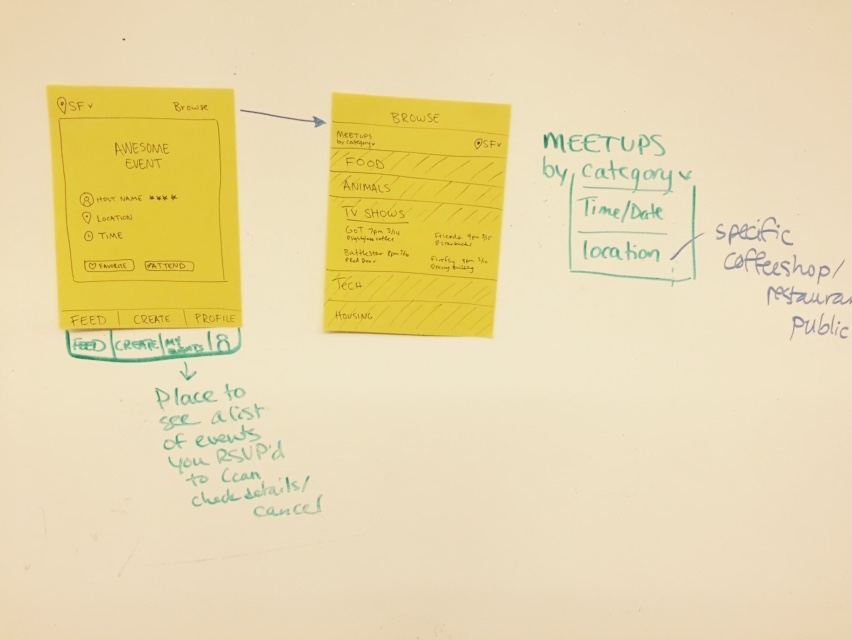 SF Browse
AWESOME
EVENT
HOST NAME ****
LOCATION
TIME
FAVORITE ATTEND
FEED CREATE PROFILE
FEED CREATE MY
Place to
see a list
of events
you RSVP'd
to (can
check details/
cancel
BROWSE
MEETUPS
by category SF
FOOD
ANIMALS
TV SHOWS
GOT 7pm 3/14
coffee
Friends 9pm 3/15
Battlestar 8pm
Red Door
Firefly 8pm
TECH
HOUSING
MEETUPS
by category
Time/Date
location
specific
coffeeshop/
restauran
public